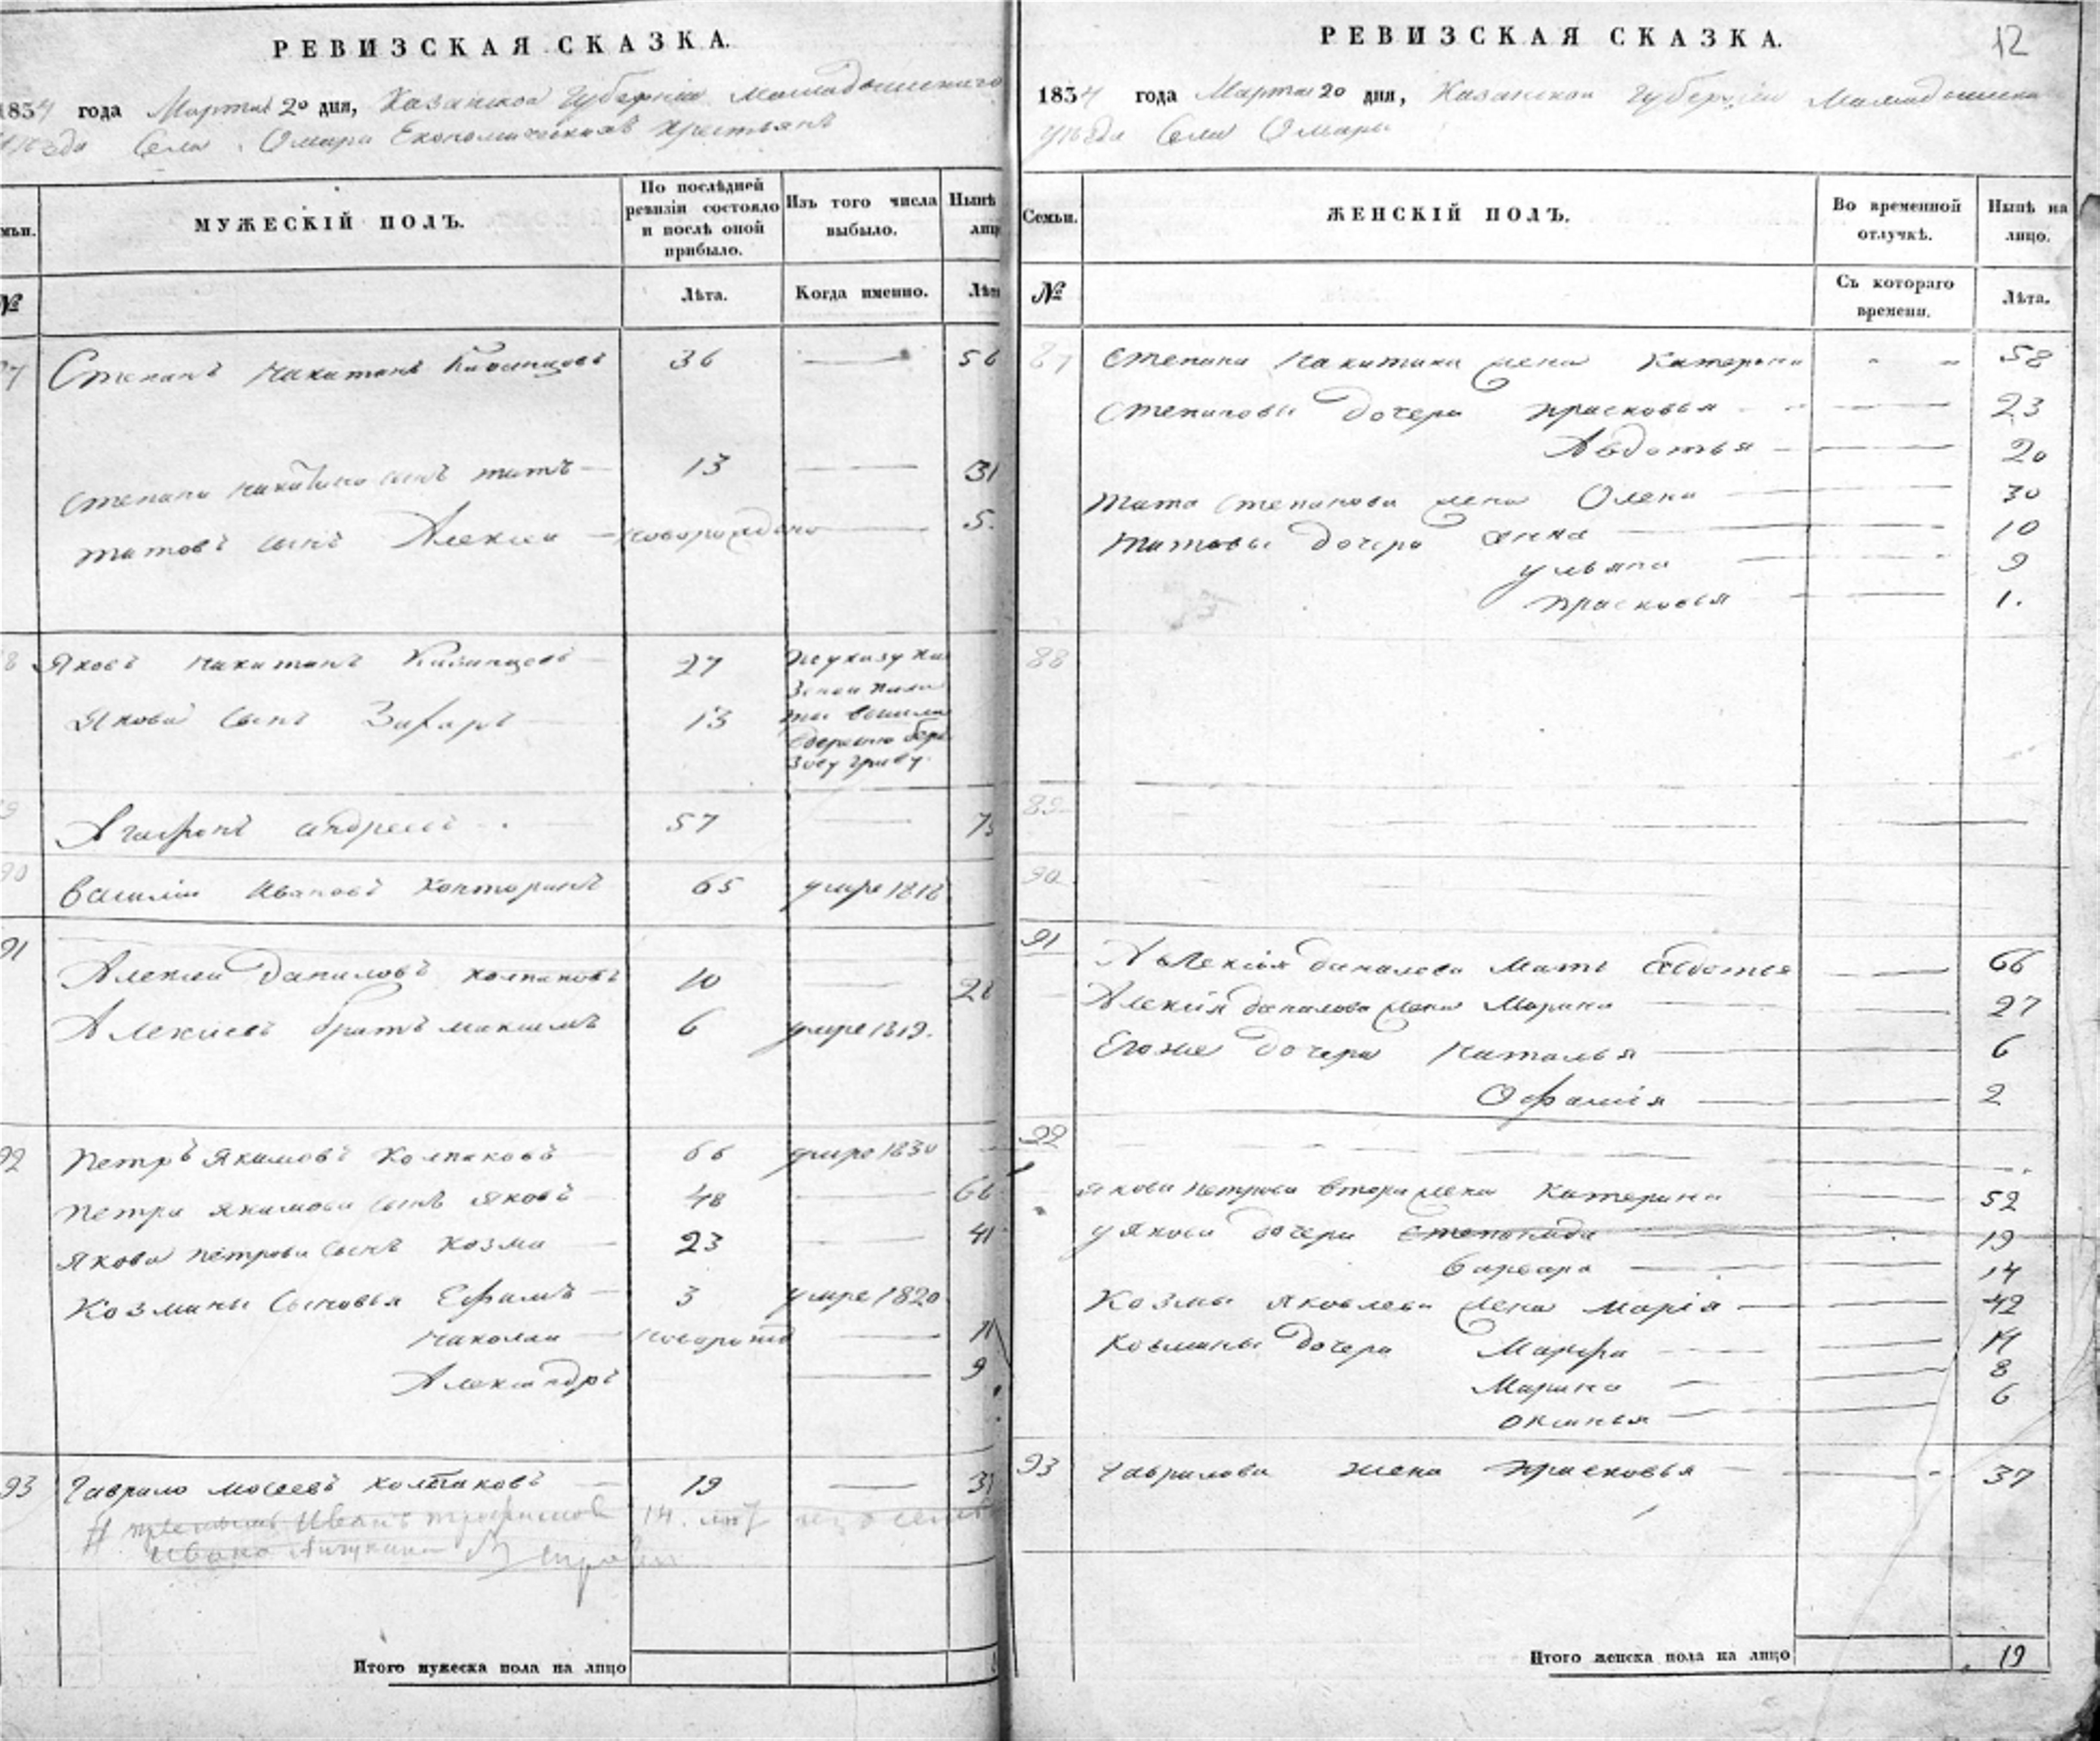 РЕВИЗСКАЯ СКАЗКА.
1834 года Марта 20 дня, Казанской Губернии Мамадышского
уезда Села Омары Економическихъ крестьянъ
МУЖЕСКІЙ ПОЛЪ.
По послѣдней ревизіи состояло и послѣ оной прибыло.
Изъ того числа выбыло.
Нынѣ
№
Лѣта.
Когда именно.
Степанъ Никитинъ Казанцовъ 36 — 56
Степана Никитина сынъ титъ — 13 — 31
титовъ сынъ Алексеи — новорожденъ — 5.
Яковъ Никитинъ Казанцовъ — 27 по указу ка
зенной пала
Якова сынъ Захаръ 13 ты вышли
в деревню бере
зову гриву.
Агафонъ андреевъ 57
90 Василии Ивановъ 65 умре 1818
91
Алексеи Даниловъ колпаковъ 10 — 28
Алексеевъ братъ максимъ 6 умре 1819.
92 Петръ Якимовъ Колпаковъ 66 умре 1830
Петра якимова сынъ яковъ 48 —
Якова петрова сынъ козма 23 — 41
Козмины сыновья Ефимъ 3 умре 1820
Николаи —
Александръ — 9
93 Гаврило мосеевъ колпаковъ 19 —
Иванъ трофимов 14. лет
Итого мужеска пола на лицо
РЕВИЗСКАЯ СКАЗКА. 12
1834 года Марта 20 дня, Казанской Губерніи Мамадышска
уезда Села Омары
Семьи.
ЖЕНСКІЙ ПОЛЪ.
Во временной отлучкѣ.
Нынѣ на лицо.
№
Съ котораго времени.
Лѣта.
87 Степана Никитина жена Катерина 58
Степановы дочери прасковья — 23
Авдотья — 20
тита Степанова жена Олена — 30
титовы дочери анна — 10
ульяна — 9
прасковья — 1.
88
89
90
91
Алексія данилова мать авдотья — 66
Алексія данилова жена Марина — 27
Егоже дочери Наталья — 6
Офимія — 2
92
якова петрова втора жена катерина 52
у якова дочери степонида 19
варвара — 14
Козмы яковлева жена марія — 42
козмины дочери Марфа — 11
Марина — 8
оксинья — 6
93 гаврилова жена прасковья — 37
Итого женска пола на лицо 19